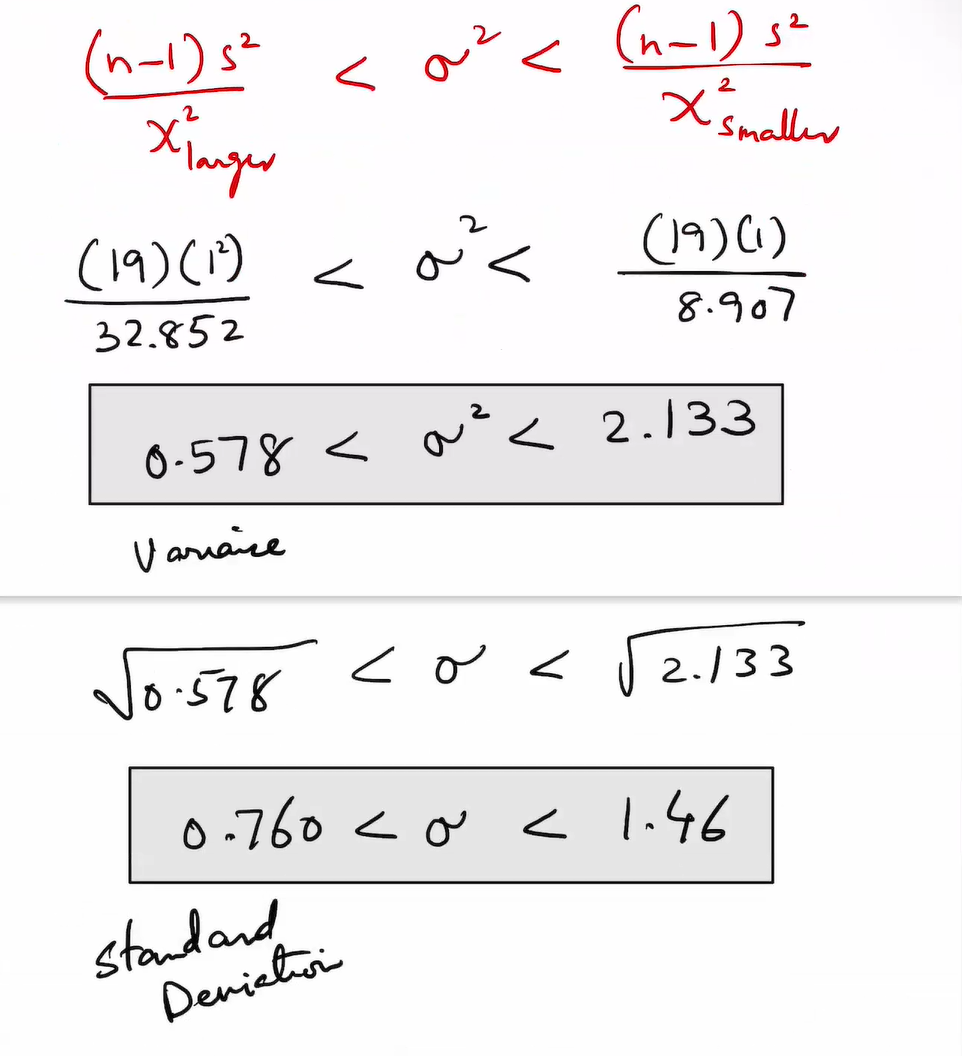 (n-1) s² / χ² larger < σ² < (n-1) s² / χ² smaller
(19)(1²) / 32.852 < σ² < (19)(1) / 8.907
0.578 < σ² < 2.133
Variance
√0.578 < σ < √2.133
0.760 < σ < 1.46
Standard
Deviation